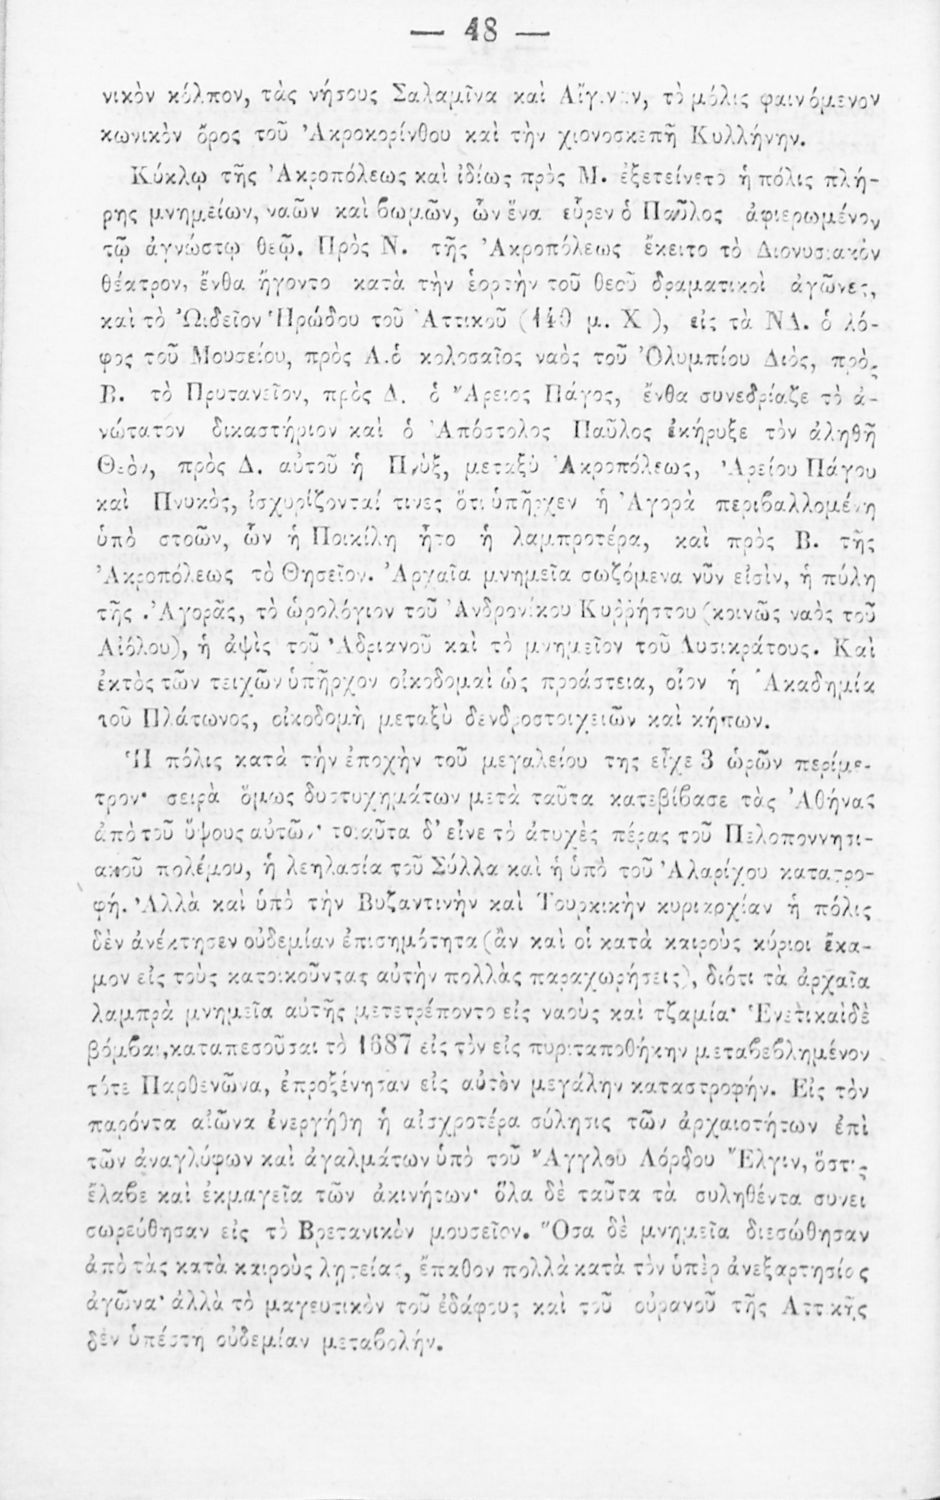 — 48 —
νικὸν κόλπον, τὰς νήσους Σαλαμῖνα καὶ Αἴγιναν, τὸ μόλις φαινόμενον
κωνικὸν ὄρος τοῦ Ἀκροκορίνθου καὶ τὴν χιονοσκεπῆ Κυλλήνην.
Κύκλῳ τῆς Ἀκροπόλεως καὶ ἰδίως πρὸς Μ. ἐξετείνετο ἡ πόλις πλή-
ρης μνημείων, ναῶν καὶ βωμῶν, ὧν ἕνα εὗρεν ὁ Παῦλος ἀφιερωμένον
τῷ ἀγνώστῳ θεῷ. Πρὸς Ν. τῆς Ἀκροπόλεως ἔκειτο τὸ Διονυσιακὸν
θέατρον, ἔνθα ἤγοντο κατὰ τὴν ἑορτὴν τοῦ θεοῦ δραματικοὶ ἀγῶνες,
καὶ τὸ Ὠιδεῖον Ἡρώδου τοῦ Ἀττικοῦ (140 μ. Χ), εἰς τὰ ΝΔ. ὁ λό-
φος τοῦ Μουσείου, πρὸς Α. ὁ κολοσαῖος ναὸς τοῦ Ὀλυμπίου Διὸς, πρὸς
Β. τὸ Πρυτανεῖον, πρὸς Δ. ὁ Ἄρειος Πάγος, ἔνθα συνεδρίαζε τὸ ἀ-
νώτατον δικαστήριον καὶ ὁ Ἀπόστολος Παῦλος ἐκήρυξε τὸν ἀληθῆ
Θεὸν, πρὸς Δ. αὐτοῦ ἡ Πνὺξ, μεταξὺ Ἀκροπόλεως, Ἀρείου Πάγου
καὶ Πνυκὸς, ἰσχυρίζονταί τινες ὅτι ὑπῆρχεν ἡ Ἀγορὰ περιβαλλομένη
ὑπὸ στοῶν, ὧν ἡ Ποικίλη ἦτο ἡ λαμπροτέρα, καὶ πρὸς Β. τῆς
Ἀκροπόλεως τὸ Θησεῖον. Ἀρχαῖα μνημεῖα σωζόμενα νῦν εἰσὶν, ἡ πύλη
τῆς Ἀγορᾶς, τὸ ὡρολόγιον τοῦ Ἀνδρονίκου Κυῤῥήστου (κοινῶς ναὸς τοῦ
Αἰόλου), ἡ ἀψὶς τοῦ Ἀδριανοῦ καὶ τὸ μνημεῖον τοῦ Λυσικράτους. Καὶ
ἐκτὸς τῶν τειχῶν ὑπῆρχον οἰκοδομαὶ ὡς προάστεια, οἷον ἡ Ἀκαδημία
τοῦ Πλάτωνος, οἰκοδομὴ μεταξὺ δενδροστοιχειῶν καὶ κήπων.
Ἡ πόλις κατὰ τὴν ἐποχὴν τοῦ μεγαλείου της εἶχε 3 ὡρῶν περίμε-
τρον· σειρὰ ὅμως δυστυχημάτων μετὰ ταῦτα κατεβίβασε τὰς Ἀθήνας
ἀπὸ τοῦ ὕψους αὐτῶν· τοιαῦτα δ’ εἶνε τὸ ἀτυχὲς πέρας τοῦ Πελοποννησι-
ακοῦ πολέμου, ἡ λεηλασία τοῦ Σύλλα καὶ ἡ ὑπὸ τοῦ Ἀλαρίχου καταστρο-
φή. Ἀλλὰ καὶ ὑπὸ τὴν Βυζαντινὴν καὶ Τουρκικὴν κυριαρχίαν ἡ πόλις
δὲν ἀνέκτησεν οὐδεμίαν ἐπισημότητα (ἂν καὶ οἱ κατὰ καιροὺς κύριοι ἔκα-
μον εἰς τοὺς κατοικοῦντας αὐτὴν πολλὰς παραχωρήσεις), διότι τὰ ἀρχαῖα
λαμπρὰ μνημεῖα αὐτῆς μετετρέποντο εἰς ναοὺς καὶ τζαμία· Ἑνετικαὶ δὲ
βόμβαι, καταπεσοῦσαι τὸ 1687 εἰς τὸν εἰς πυριταποθήκην μεταβεβλημένον
τότε Παρθενῶνα, ἐπροξένησαν εἰς αὐτὸν μεγάλην καταστροφήν. Εἰς τὸν
παρόντα αἰῶνα ἐνεργήθη ἡ αἰσχροτέρα σύλησις τῶν ἀρχαιοτήτων ἐπὶ
τῶν ἀναγλύφων καὶ ἀγαλμάτων ὑπὸ τοῦ Ἄγγλου Λόρδου Ἔλγιν, ὅστις
ἔλαβε καὶ ἐκμαγεῖα τῶν ἀκινήτων· ὅλα δὲ ταῦτα τὰ συληθέντα συνε
σωρεύθησαν εἰς τὸ Βρετανικὸν μουσεῖον. Ὅσα δὲ μνημεῖα διεσώθησαν
ἀπὸ τὰς κατὰ καιροὺς λῃτείας, ἔπαθον πολλὰ κατὰ τὸν ὑπὲρ ἀνεξαρτησίας
ἀγῶνα· ἀλλὰ τὸ μαγευτικὸν τοῦ ἐδάφους καὶ τοῦ οὐρανοῦ τῆς Ἀττικῆς
δὲν ὑπέστη οὐδεμίαν μεταβολήν.